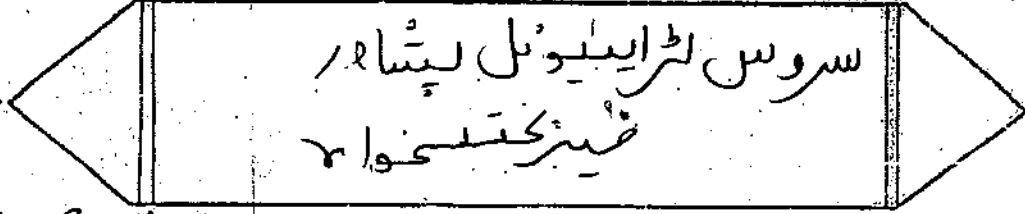 سروس ٹرایبیونل پشاور
خیبر پختنخواہ